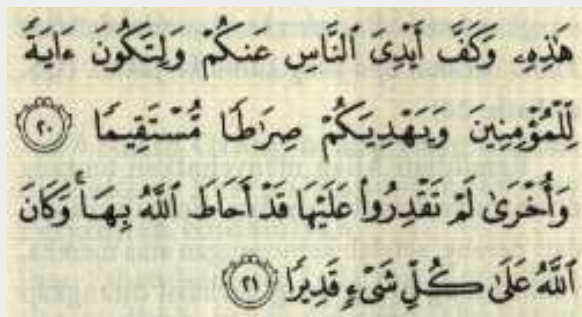 هَٰذِهِۦ وَكَفَّ أَيْدِىَ ٱلنَّاسِ عَنكُمْ وَلِتَكُونَ ءَايَةً
لِّلْمُؤْمِنِينَ وَيَهْدِيَكُمْ صِرَٰطًا مُّسْتَقِيمًا ٢٠
وَأُخْرَىٰ لَمْ تَقْدِرُوا۟ عَلَيْهَا قَدْ أَحَاطَ ٱللَّهُ بِهَا ۚ وَكَانَ
ٱللَّهُ عَلَىٰ كُلِّ شَىْءٍ قَدِيرًا ٢١